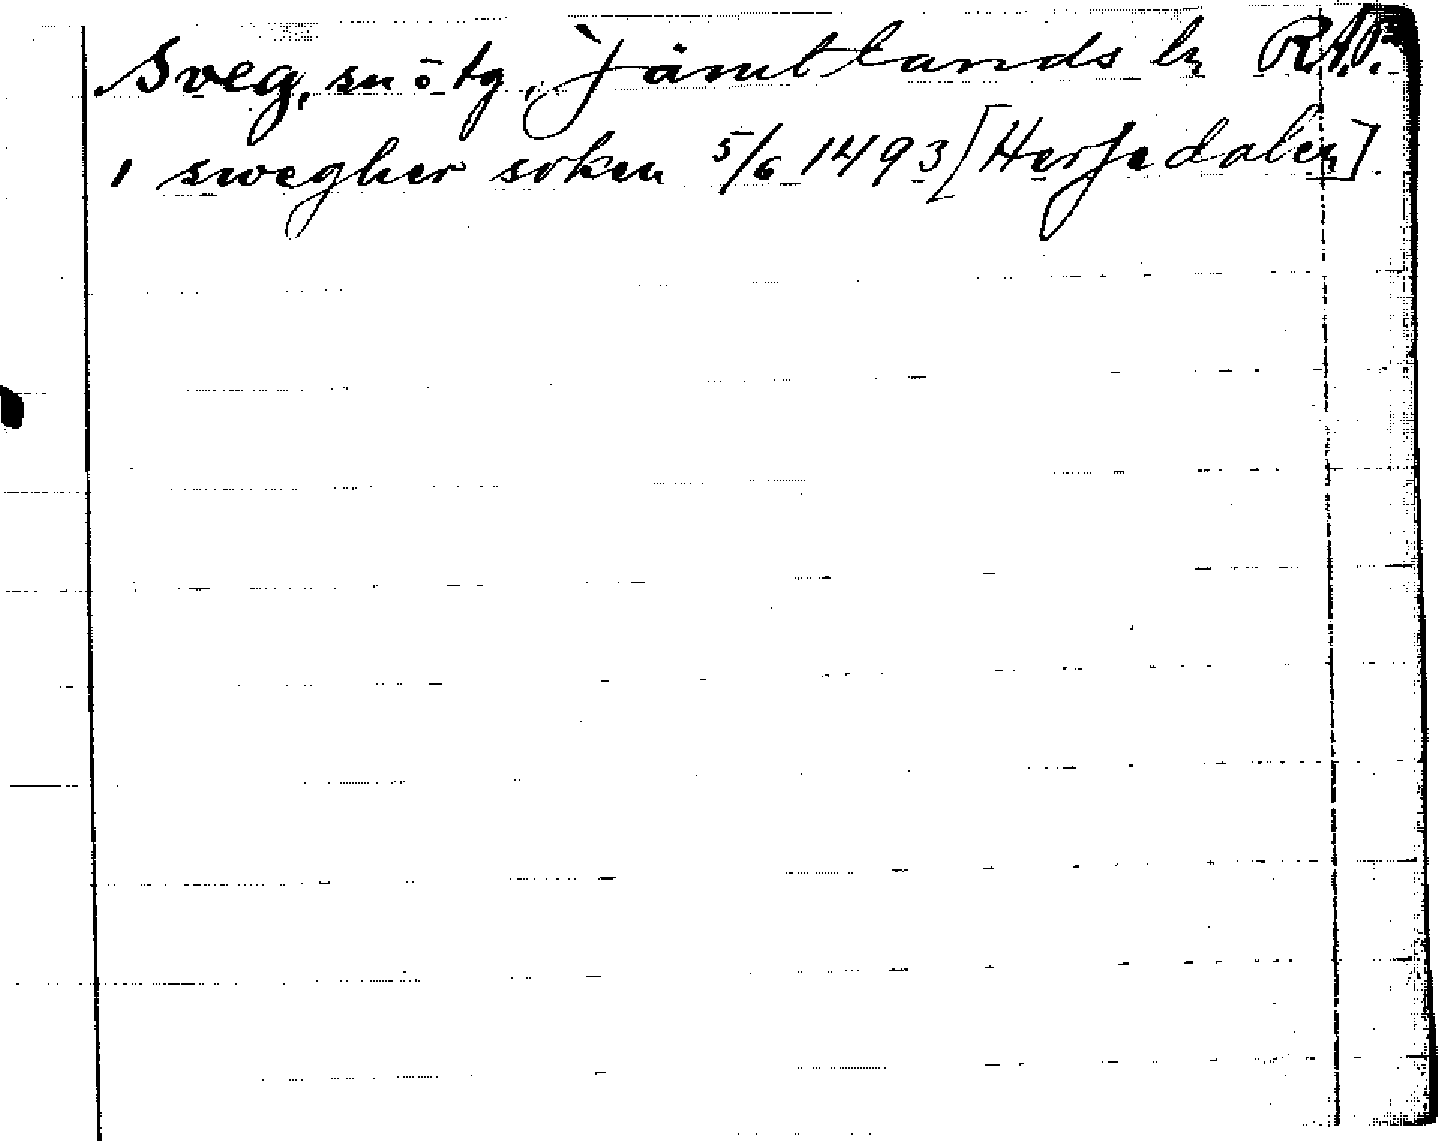 Sveg, sn ö tg, Jämtlands ln R.A.P.
i swegher soken 5/6 1493 [Herjedalen].